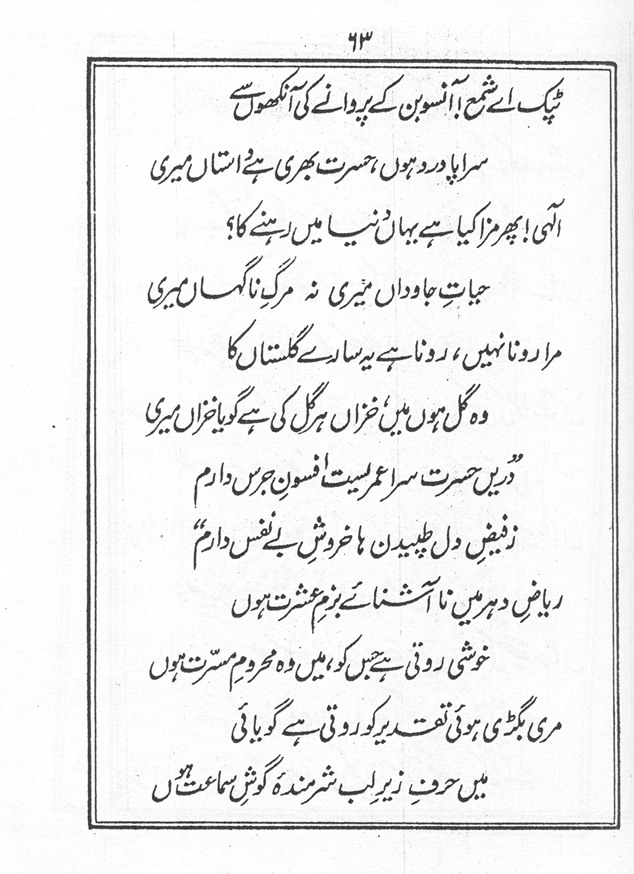 ۶۳
ٹپک اے شمع! آنسو بن کے پروانے کی آنکھوں سے
سراپا درد ہوں، حسرت بھری ہے داستاں میری
الٰہی! پھر مزا کیا ہے یہاں دنیا میں رہنے کا؟
حیاتِ جاوداں میری نہ مرگِ ناگہاں میری
مرا رونا نہیں، رونا ہے یہ سارے گلستاں کا
وہ گل ہوں میں، خزاں ہر گل کی ہے گویا خزاں میری
”دریں حسرت سرا عمریست افسونِ جرس دارم
زفیضِ دل طپیدن ہا خروشِ بے نفس دارم“
ریاضِ دہر میں نا آشنائے بزمِ عشرت ہوں
خوشی روتی ہے جس کو، میں وہ محرومِ مسرّت ہوں
مری بگڑی ہوئی تقدیر کو روتی ہے گویائی
میں حرفِ زیرِ لب شرمندۂ گوشِ سماعت ہوں